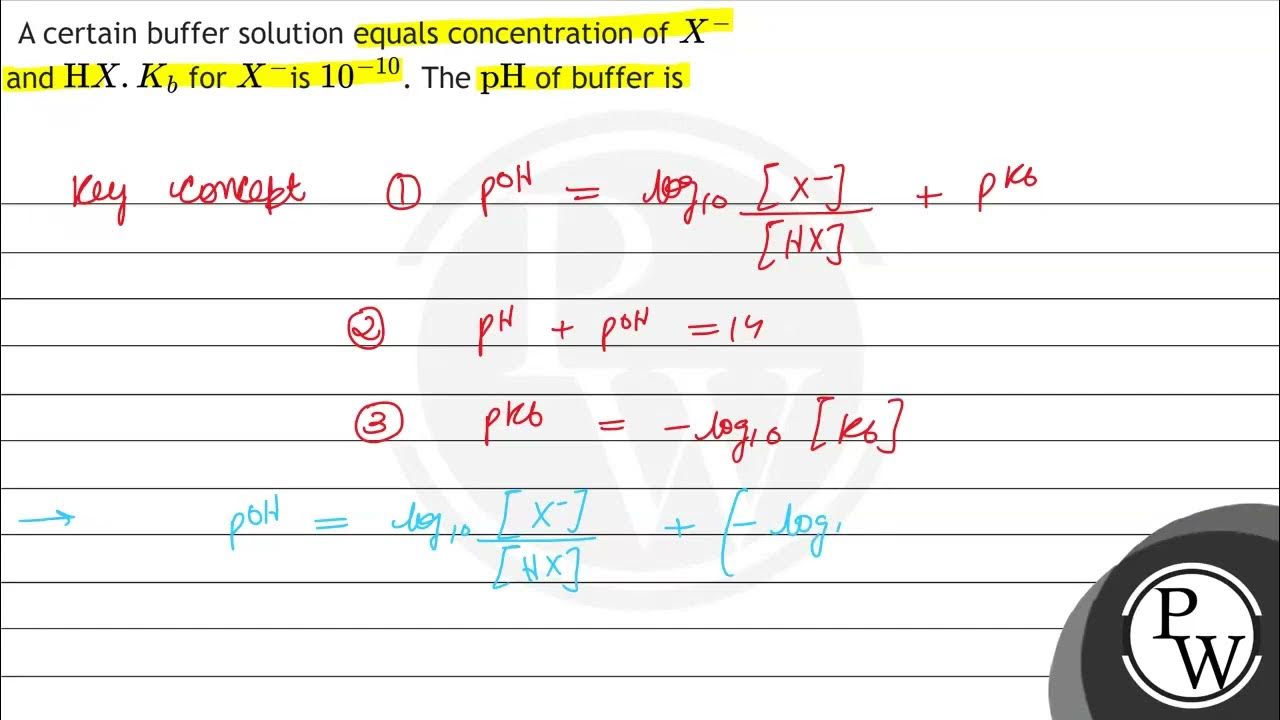 A certain buffer solution equals concentration of X⁻
and HX. K_b for X⁻ is 10⁻¹⁰. The pH of buffer is
Key concept ① pOH = log₁₀ [X⁻]/[HX] + pKb
② pH + pOH = 14
③ pKb = -log₁₀ [Kb]
→ pOH = log₁₀ [X⁻]/[HX] + (- log,
PW
PW